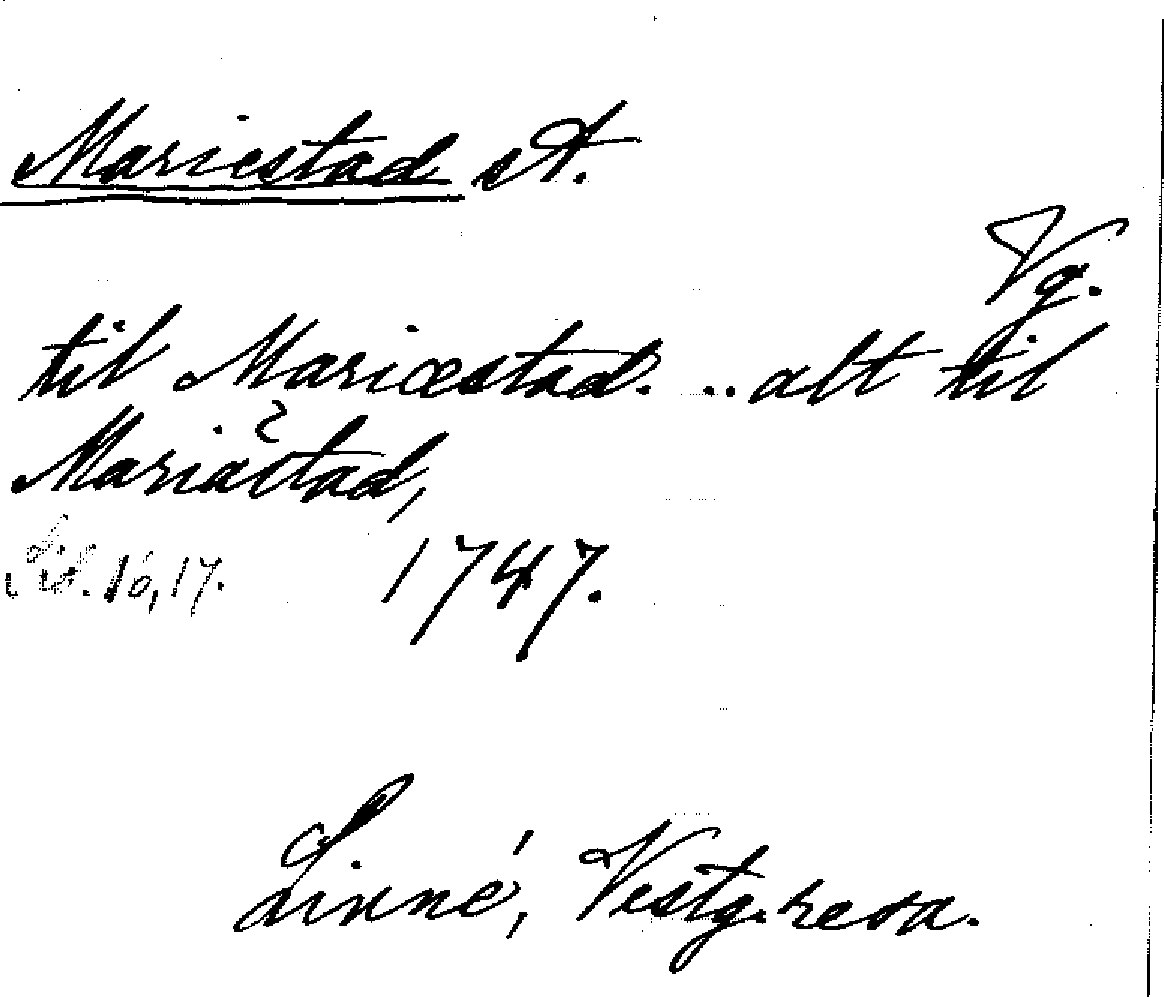 Mariestad st.
Vg.
til Mariæstad. .. alt til
Mariæstad,
Sid. 16, 17. 1747.
Linné, Vestg. resa.